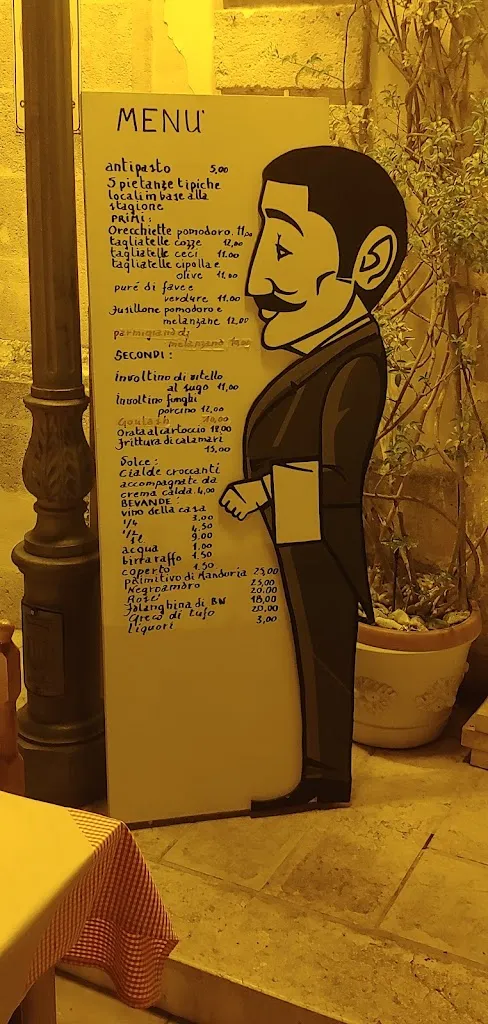 MENU'
antipasto 5,00
5 pietanze tipiche
locali in base alla
stagione
PRIMI:
Orecchiette pomodoro. 11,00
tagliatelle cozze 12,00
tagliatelle ceci 11.00
tagliatelle cipolla e
olive 11.00
puré di fave e
verdure 11.00
Fusillone pomodoro e
melanzane 12,00
parmigiana di
melanzane
SECONDI:
involtino di vitello
al sugo 11,00
involtino funghi
porcino 12,00
Goulash 10,00
Orata al cartoccio 18,00
Frittura di calamari
15,00
Dolce:
Cialde croccanti
accompagnate da
crema calda. 4,00
BEVANDE:
vino della casa
1/4 3.00
1/2 4.50
1 l 9.00
acqua 1.00
birra raffo 1.50
coperto 1.50
primitivo di Manduria 25,00
Negroamaro 25,00
Rosè 20.00
Falanghina di BN 18,00
Greco di tufo 20,00
Liquori 3,00